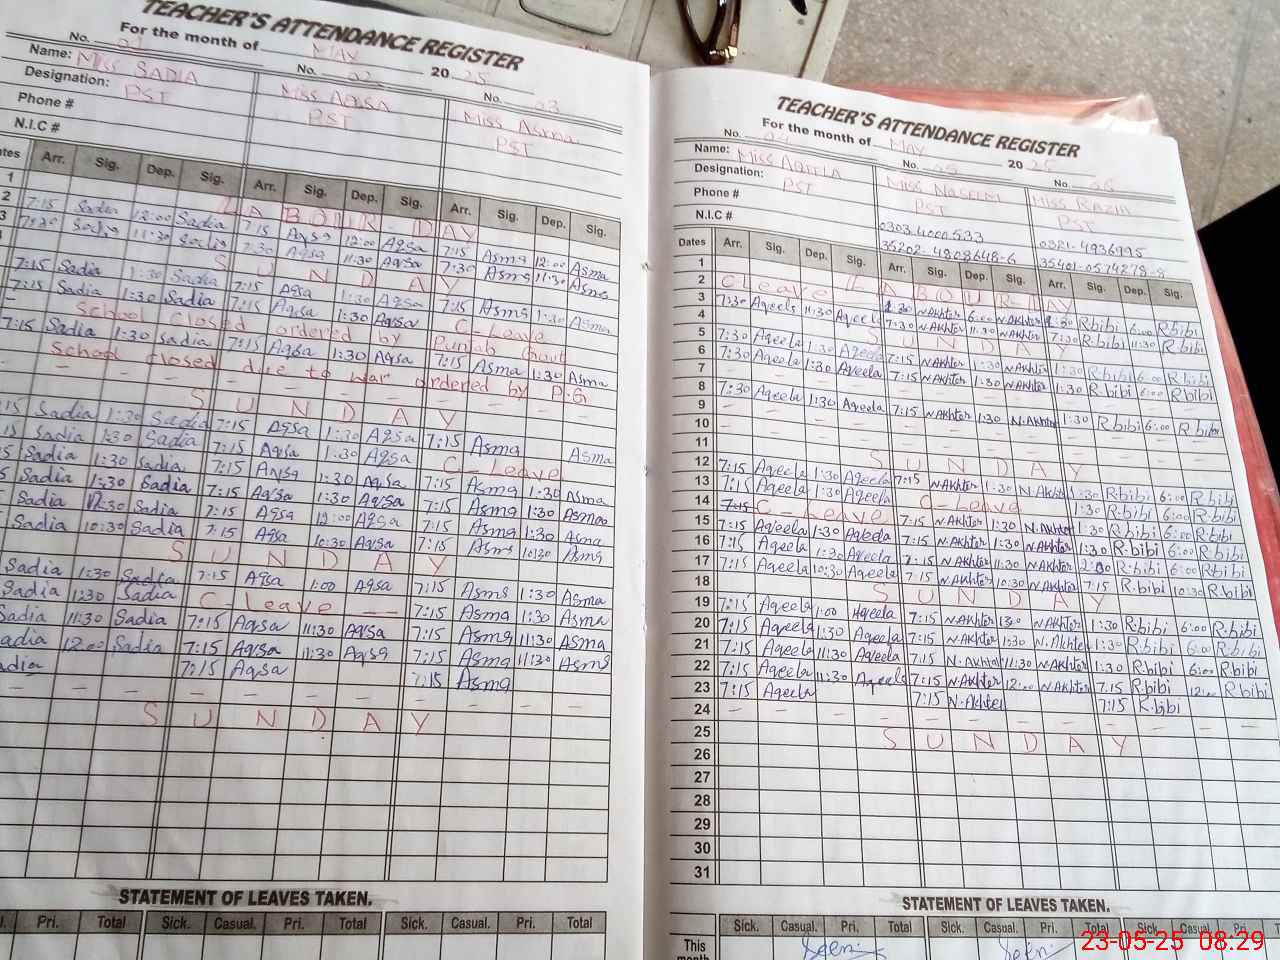 TEACHER'S ATTENDANCE REGISTER
For the month of MAY 20 25
No. 01 No. 02 No. 03
Name: MISS SADIA MISS AQSA Miss Asma
Designation: PST PST PST
Phone #
N.I.C #
Dates Arr. Sig. Dep. Sig. Arr. Sig. Dep. Sig. Arr. Sig. Dep. Sig.
1 LABOUR-DAY
2 7:15 Sadia 12:00 Sadia 7:15 Aqsa 12:00 Aqsa 7:15 Asma 12:00 Asma
3 7:30 Sadia 11:30 Sadia 7:30 Aqsa 11:30 Aqsa 7:30 Asma 11:30 Asma
SUNDAY
7:15 Sadia 1:30 Sadia 7:15 Aqsa 1:30 Aqsa 7:15 Asma 1:30 Asma
7:15 Sadia 1:30 Sadia 7:15 Aqsa 1:30 Aqsa C-Leave
School closed ordered by Punjab Govt
7:15 Sadia 1:30 Sadia 7:15 Aqsa 1:30 Aqsa 7:15 Asma 1:30 Asma
School closed due to war ordered by P.G
SUNDAY
Sadia 1:30 Sadia 7:15 Aqsa 1:30 Aqsa 7:15 Asma Asma
Sadia 1:30 Sadia 7:15 Aqsa 1:30 Aqsa C-Leave
Sadia 1:30 Sadia 7:15 Aqsa 1:30 Aqsa 7:15 Asma 1:30 Asma
Sadia 1:30 Sadia 7:15 Aqsa 1:30 Aqsa 7:15 Asma 1:30 Asma
Sadia Sadia 7:15 Aqsa 12:00 Aqsa 7:15 Asma 1:30 Asma
Sadia 10:30 Sadia 7:15 Aqsa 10:30 Aqsa 7:15 Asma 10:30 Asma
SUNDAY
Sadia 1:30 Sadia 7:15 Aqsa 1:00 Aqsa 7:15 Asma 1:30 Asma
Sadia 1:30 Sadia C-Leave 7:15 Asma 1:30 Asma
Sadia 11:30 Sadia 7:15 Aqsa 11:30 Aqsa 7:15 Asma 11:30 Asma
Sadia 12:00 Sadia 7:15 Aqsa 11:30 Aqsa 7:15 Asma 11:30 Asma
7:15 Aqsa 7:15 Asma
SUNDAY
STATEMENT OF LEAVES TAKEN.
Pri. Total Sick. Casual. Pri. Total Sick. Casual. Pri. Total
TEACHER'S ATTENDANCE REGISTER
For the month of May 20 25
No. 04 No. 05 No. 06
Name: Miss AQEELA MISS NASEEM MISS RAZIA
Designation: PST PST PST
Phone # 0303.4000533 0321-4936995
N.I.C # 35202-4808648-6 35401-0514278-8
Dates Arr. Sig. Dep. Sig. Arr. Sig. Dep. Sig. Arr. Sig. Dep. Sig.
1 LABOUR-DAY
2 C Leave 1:30 N.Akhter 6:00 N.Akhter 1:30 R.bibi 6:00 R.bibi
3 7:30 Aqeela 11:30 Aqeela 7:30 N.Akhter 11:30 N.Akhter 7:30 R.bibi 11:30 R.bibi
4 SUNDAY
5 7:30 Aqeela 1:30 Aqeela 7:15 N.Akhter 1:30 N.Akhter 1:30 R.bibi 6:00 R.bibi
6 7:30 Aqeela 1:30 Aqeela 7:15 N.Akhter 1:30 N.Akhter 1:30 R.bibi 6:00 R.bibi
7
8 7:30 Aqeela 1:30 Aqeela 7:15 N.Akhter 1:30 N.Akhter 1:30 R.bibi 6:00 R.bibi
9
10
11 SUNDAY
12 7:15 Aqeela 1:30 Aqeela 7:15 N.Akhter 1:30 N.Akhter 1:30 R.bibi 6:00 R.bibi
13 7:15 Aqeela 1:30 Aqeela C-Leave 1:30 R.bibi 6:00 R.bibi
14 7:15 C-Leave 7:15 N.Akhter 1:30 N.Akhter 1:30 R.bibi 6:00 R.bibi
15 7:15 Aqeela 1:30 Aqeela 7:15 N.Akhter 1:30 N.Akhter 1:30 R.bibi 6:00 R.bibi
16 7:15 Aqeela 1:30 Aqeela 7:15 N.Akhter 11:30 N.Akhter 2:00 R.bibi 6:00 R.bibi
17 7:15 Aqeela 10:30 Aqeela 7:15 N.Akhter 10:30 N.Akhter 7:15 R.bibi 10:30 R.bibi
18 SUNDAY
19 7:15 Aqeela 1:00 Aqeela 7:15 N.Akhter 1:30 N.Akhter 1:30 R.bibi 6:00 R.bibi
20 7:15 Aqeela 1:30 Aqeela 7:15 N.Akhter 1:30 N.Akhter 1:30 R.bibi 6:00 R.bibi
21 7:15 Aqeela 11:30 Aqeela 7:15 N.Akhter 11:30 N.Akhter 1:30 R.bibi 6:00 R.bibi
22 7:15 Aqeela 11:30 Aqeela 7:15 N.Akhter 12:00 N.Akhter 7:15 R.bibi 12:00 R.bibi
23 7:15 Aqeela 7:15 N.Akhter 7:15 R.bibi
24
25 SUNDAY
26
27
28
29
30
31
STATEMENT OF LEAVES TAKEN.
Sick. Casual. Pri. Total Sick. Casual. Pri. Total Sick. Casual. Pri. Total
This month
23-05-25 08:29